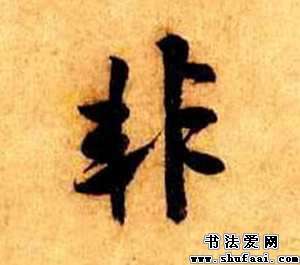 非
书法爱网
www.shufaai.com